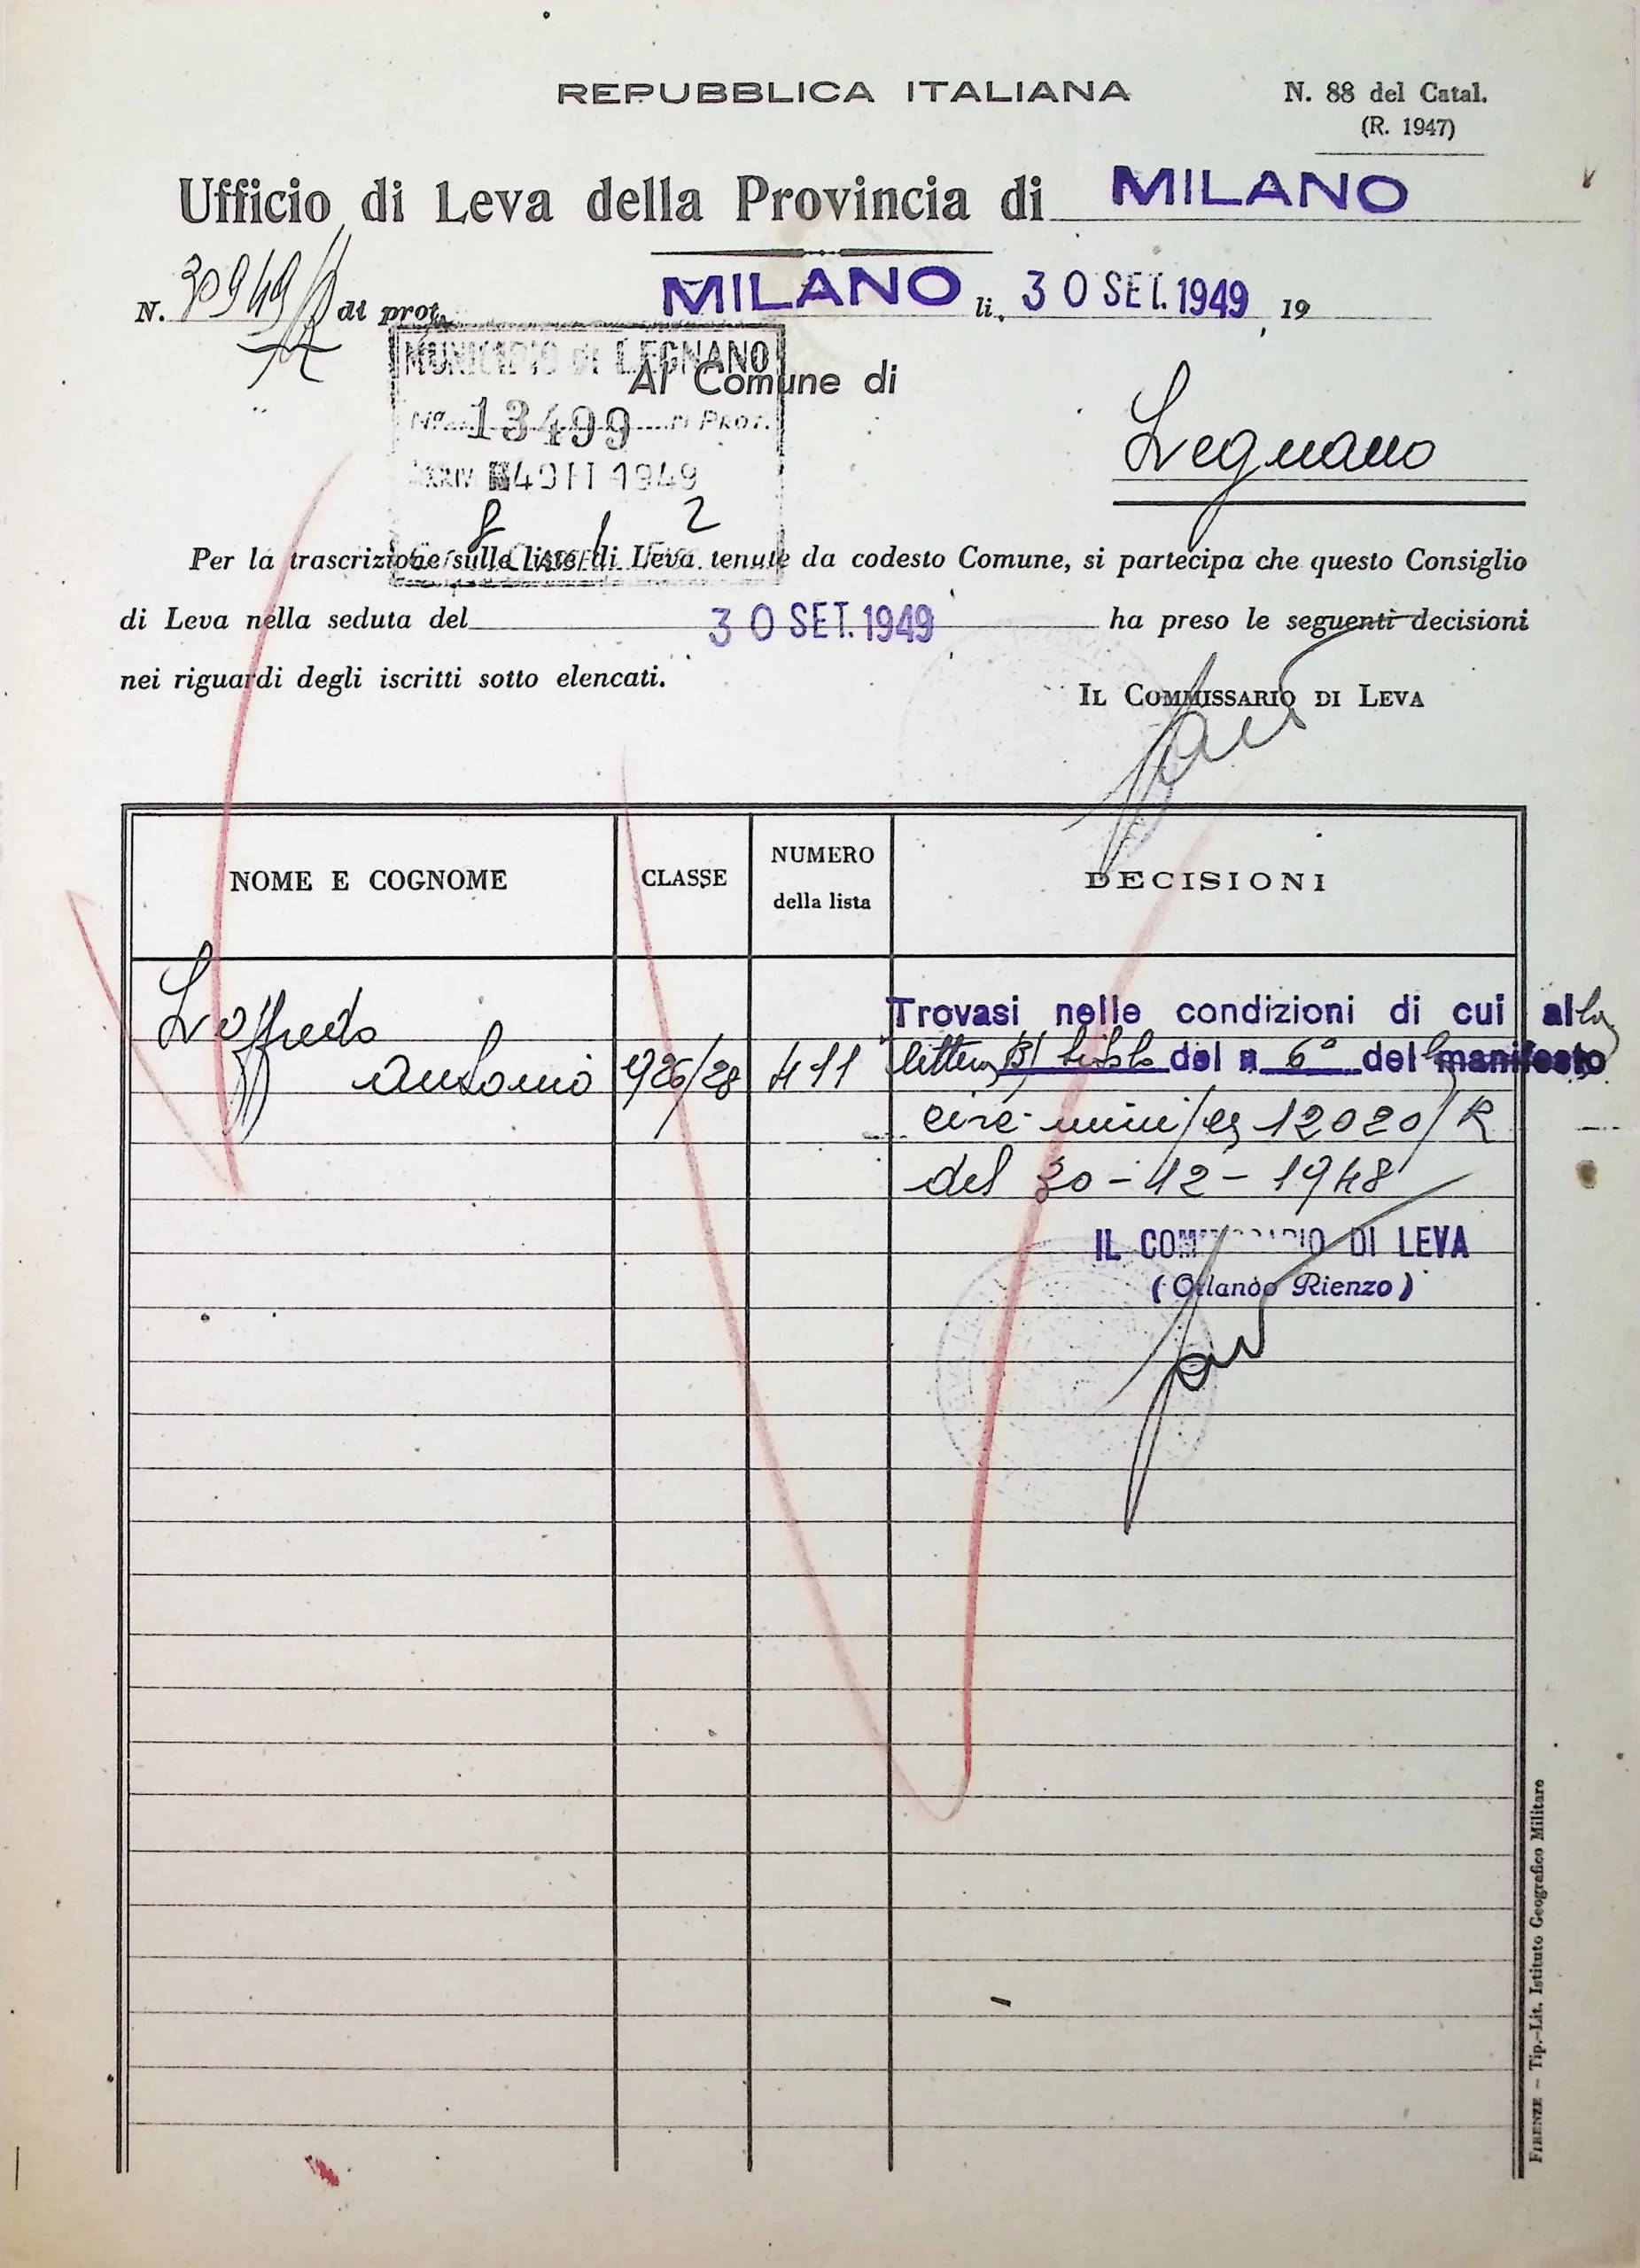 REPUBBLICA ITALIANA
N. 88 del Catal.
(R. 1947)
Ufficio di Leva della Provincia di MILANO
N. 30949 di prot.
MILANO li, 30 SET. 1949, 19
MUNICIPIO di LEGNANO
Al Comune di
No. 13499 di Prot.
4 OTT 1949
Legnano
8 1 2
Per la trascrizione sulle liste di Leva tenute da codesto Comune, si partecipa che questo Consiglio
di Leva nella seduta del 30 SET. 1949 ha preso le seguenti decisioni
nei riguardi degli iscritti sotto elencati.
IL COMMISSARIO DI LEVA
NOME E COGNOME
CLASSE
NUMERO
della lista
DECISIONI
Loffredo
Antonio
1926/28
411
Trovasi nelle condizioni di cui alla
lettera B) del n 6° del manifesto
circ. 12020/R
del 30-12-1948
IL COMMISSARIO DI LEVA
(Orlando Rienzo)
FIRENZE - Tip.-Lit. Istituto Geografico Militare